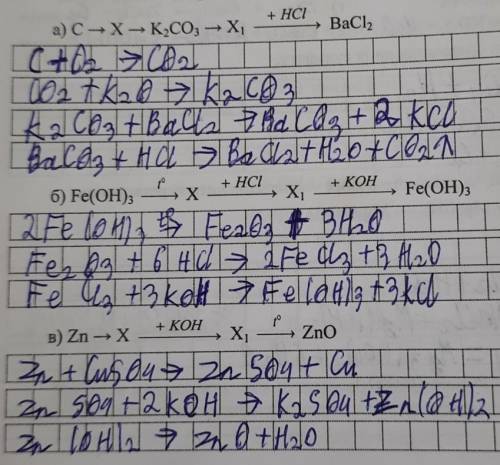 а) C → X → K₂CO₃ → X₁ + HCl → BaCl₂
C + O₂ → CO₂
CO₂ + K₂O → K₂CO₃
K₂CO₃ + BaCl₂ → BaCO₃ + 2KCl
BaCO₃ + HCl → BaCl₂ + H₂O + CO₂↑
б) Fe(OH)₃ t° → X + HCl → X₁ + KOH → Fe(OH)₃
2Fe(OH)₃ t° → Fe₂O₃ + 3H₂O
Fe₂O₃ + 6HCl → 2FeCl₃ + 3H₂O
FeCl₃ + 3KOH → Fe(OH)₃ + 3KCl
в) Zn → X + KOH → X₁ t° → ZnO
Zn + CuSO₄ → ZnSO₄ + Cu
ZnSO₄ + 2KOH → K₂SO₄ + Zn(OH)₂
Zn(OH)₂ → ZnO + H₂O